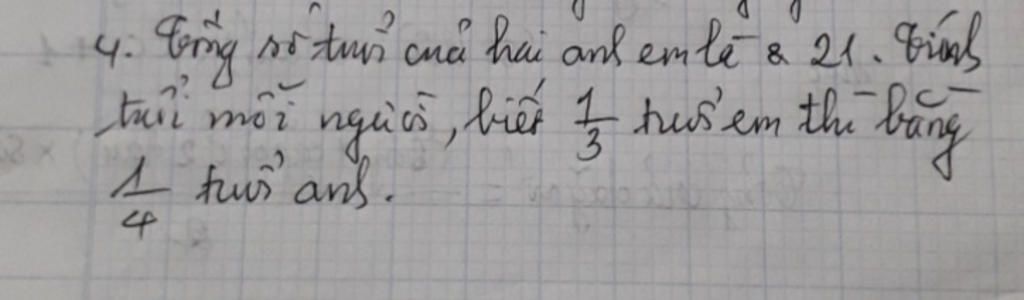 4. Tổng số tuổi của hai anh em là 21. Tính
tuổi mỗi người, biết 1/3 tuổi em thì bằng
1/4 tuổi anh.